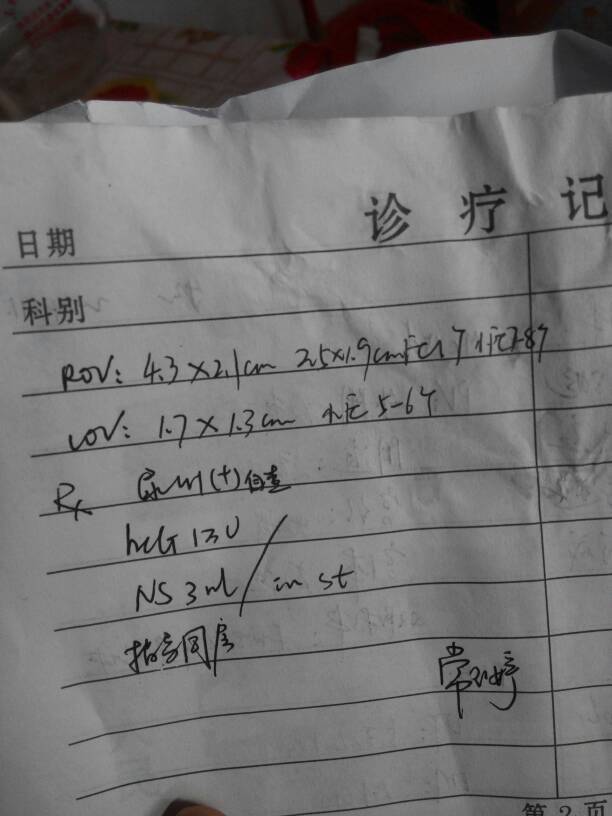 诊疗记
日期
科别
ROV: 4.3×2.1cm 2.5×1.9cm
LOV: 1.7×1.3cm 小F 5-6个
Rx 尿LH(+)自查
hCG 1支U
NS 3ml / im st
指导同房
常 婷
第 2 页